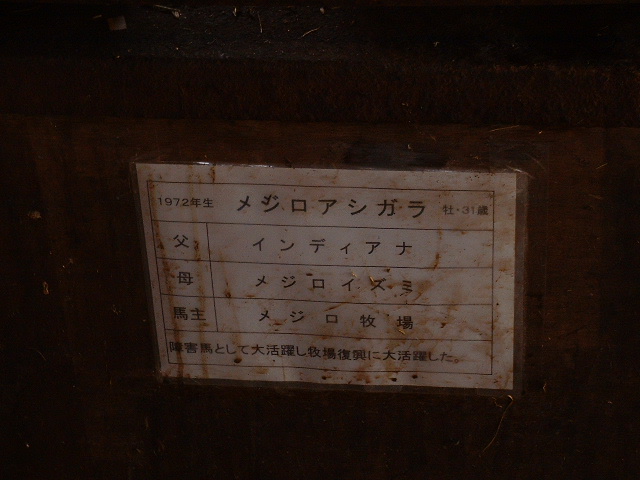 1972年生 メジロアシガラ 牡・31歳
父 インディアナ
母 メジロイズミ
馬主 メジロ牧場
障害馬として大活躍し牧場復興に大活躍した。